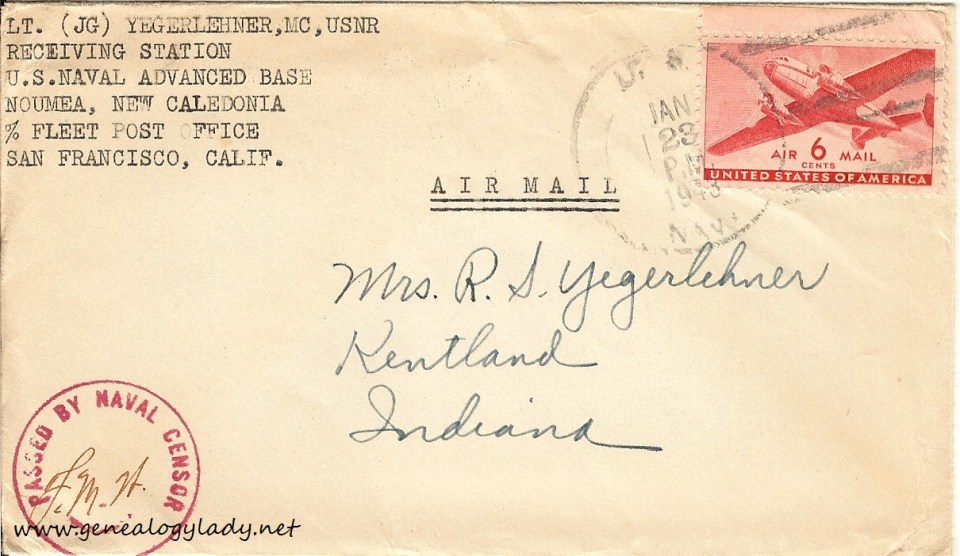 LT. (JG) YEGERLEHNER,MC,USNR
RECEIVING STATION
U.S.NAVAL ADVANCED BASE
NOUMEA, NEW CALEDONIA
% FLEET POST OFFICE
SAN FRANCISCO, CALIF.
U. S.
JAN
23
P.M
1943
NAVY
AIR 6 MAIL
CENTS
UNITED STATES OF AMERICA
AIR MAIL
Mrs. R. S. Yegerlehner
Kentland
Indiana
PASSED BY NAVAL CENSOR
F.M.H.
www.genealogylady.net